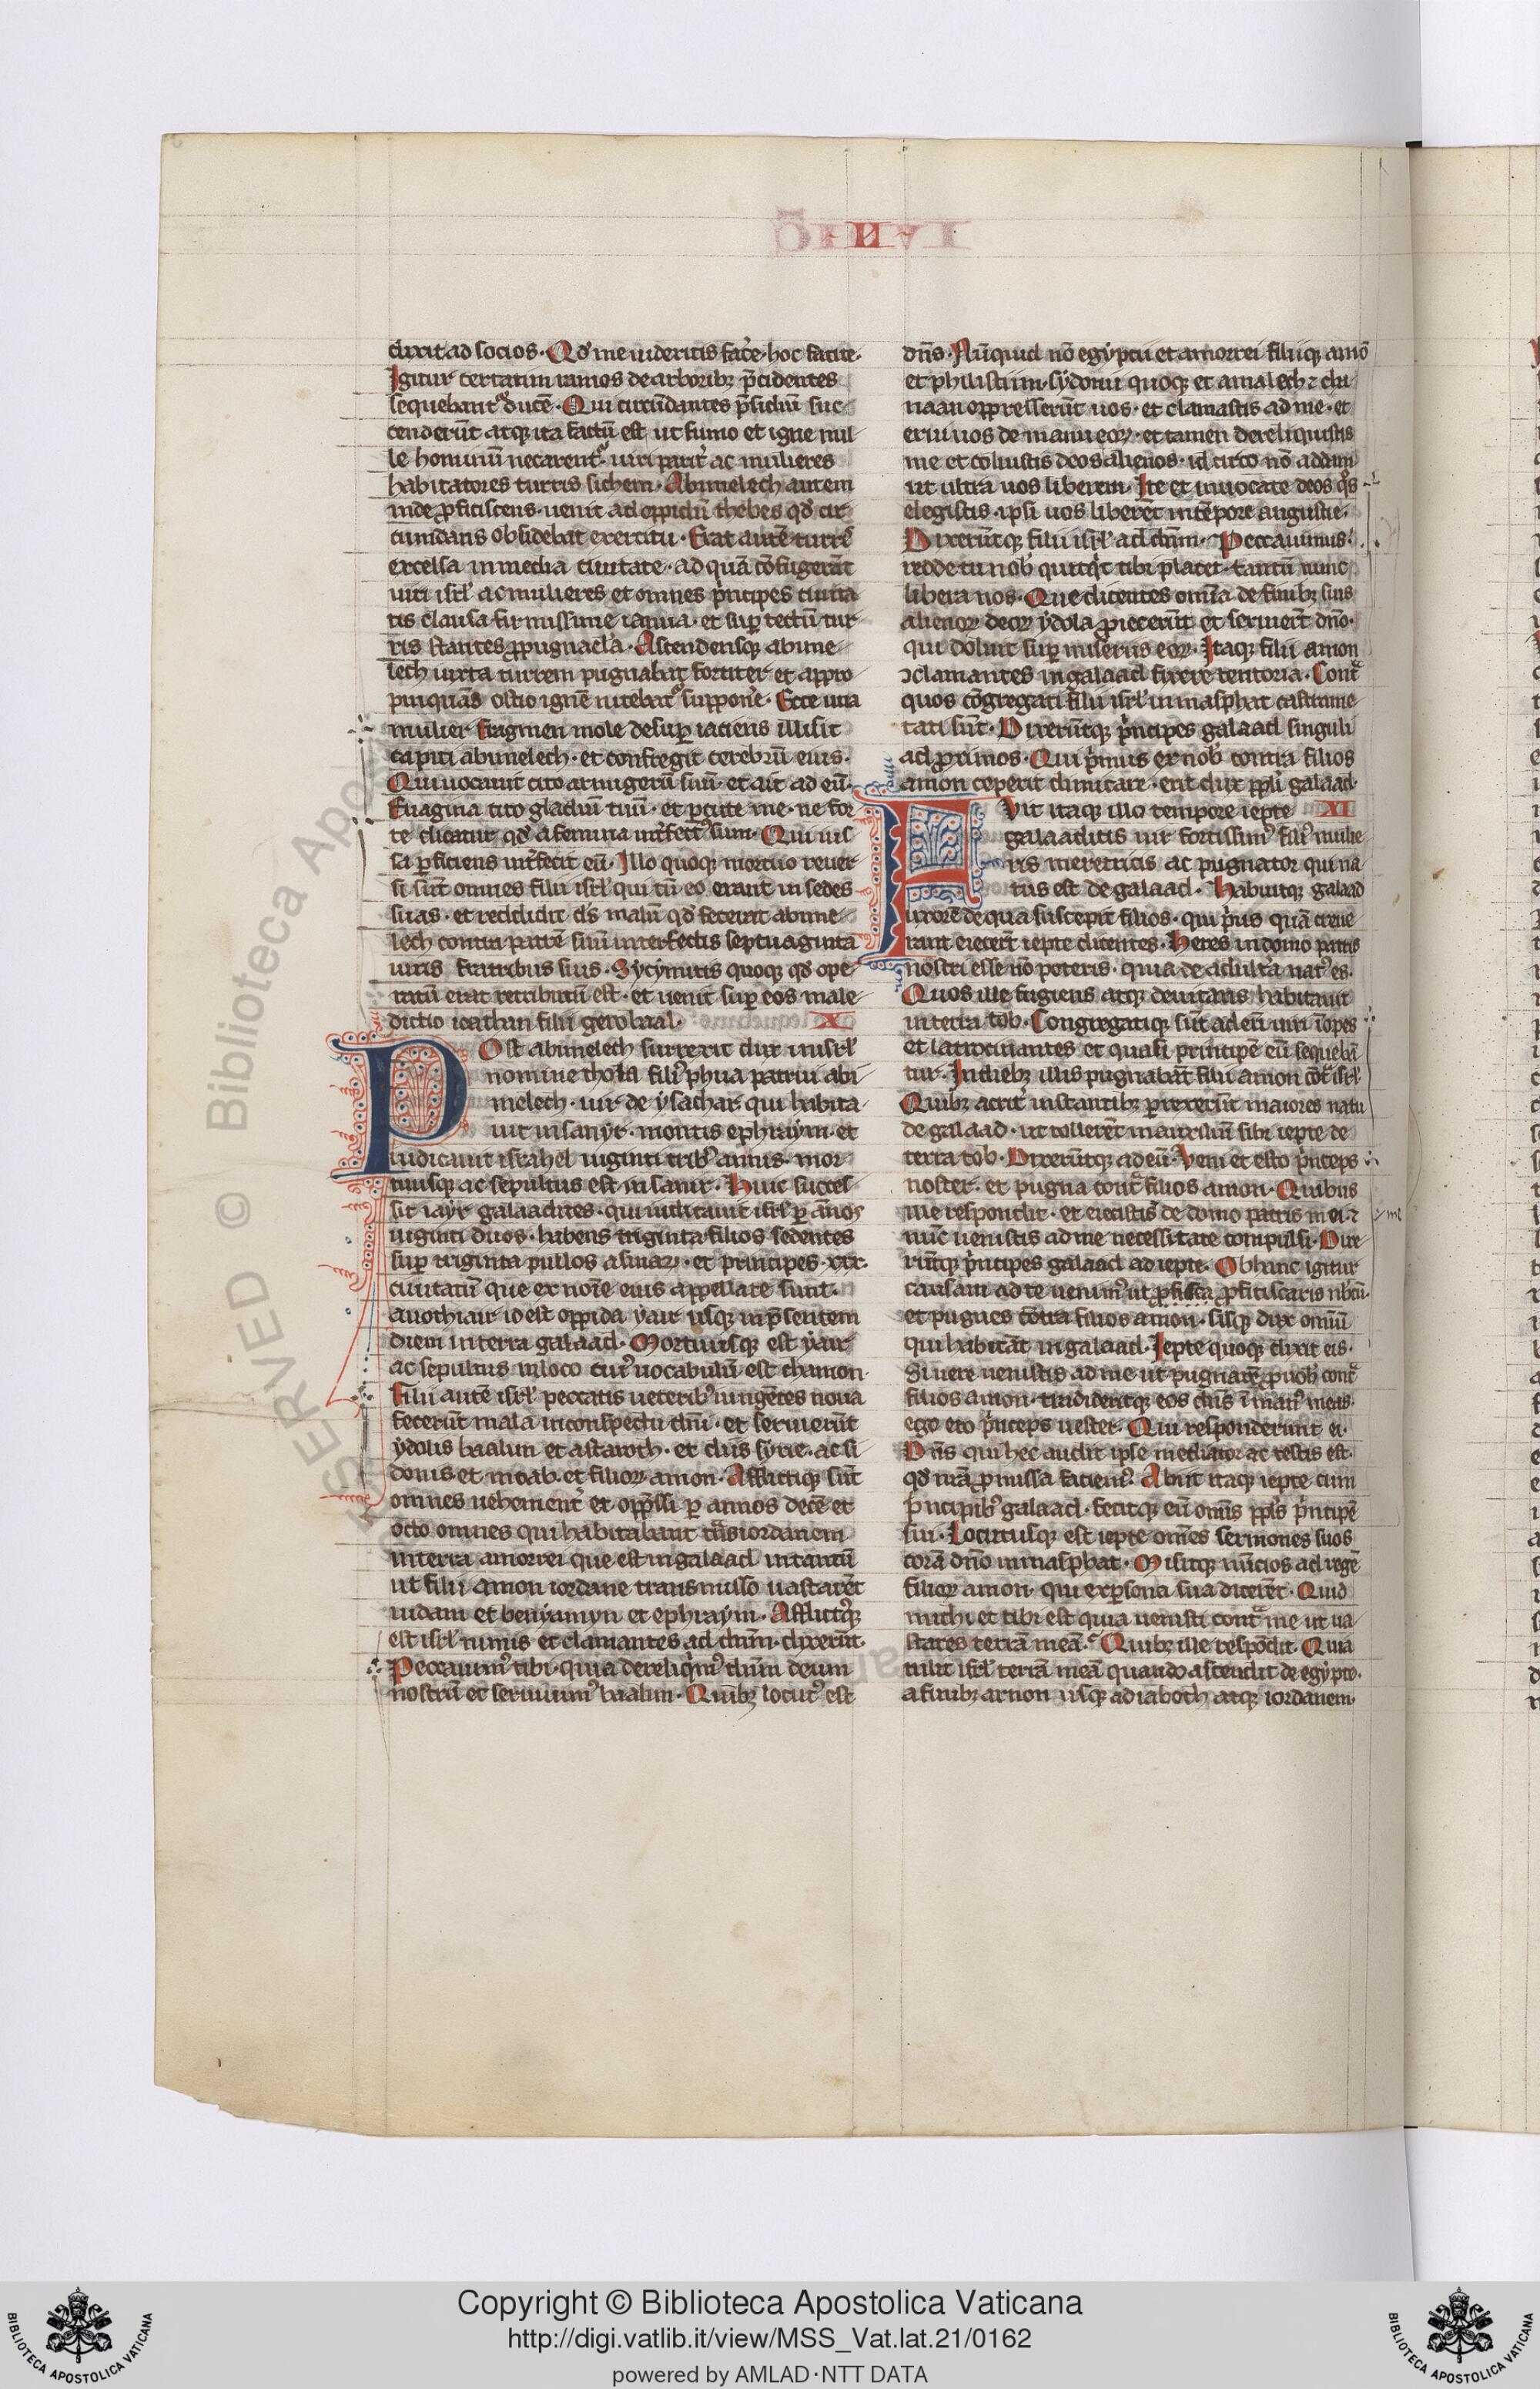 dixit ad socios. Qd' me uideritis fac'e. hoc facite.
Igitur certatim ramos de arboribȝ p̄cidentes
sequebant' ducē. Qui circūdantes p̄sidiū suc
cenderūt atqȝ ita factū est ut fumo et igne mil
le hominū necarent'. uiri parit' ac mulieres
habitatores turris sichem. Abimelech autem
inde ꝓficiscens. uenit ad oppidū thebes qd' cir
cumdans obsidebat exercitu. Erat autē turris
excelsa in media ciuitate. ad quā cōfugerāt
uiri isrl' ac mulieres et omnes p'ncipes ciuita
tis clausa firmissime ianua. et sup tectū tur
ris stantes ꝓpugnac'la. Ascendensqȝ abime
lech iuxta turrem pugnabat fortiter et appro
pinquās ostio ignē nitebat' suppon'e. Ecce una
mulier fragmen mole desup iaciens illisit
capiti abimelech. et confregit cerebrū eius.
Qui uocauit cito armigerū suū. et ait ad eū.
Euagina cito gladiū tuū. et p̱cute me. ne for
te dicatur qd' a femina int'fect' sum. Qui ius
sa p̱ficiens int'fecit eū. Illo quoqȝ mortuo reuer
si sūt omnes filii isrl' qui cū eo erant in sedes
suas. et reddidit d's malū qd' fecerat abime
lech contra patrē suū interfectis septuaginta
uiris fratribus suis. Sycymitis quoqȝ qd' ope
ratū erat retributū est. et uenit sup eos male
dictio ioathan filii gerobaal. X
POst abimelech surrexit dux in isrl'
nomine thola fili' phua patrui abi
melech. uir de ysachar qui habita
uit in sanyr. montis ephraym. et
iudicauit israhel uiginti trib' annis. mor
tuusqȝ ac sepultus est in sanir. Huic succes
sit iayr galaadites. qui iudicauit isrl' p̱ ānos
uiginti duos. habens triginta filios sedentes
sup triginta pullos asinaꝝ. et principes xxx.
ciuitatū que ex noīe eius appellate sunt.
auothiair id est oppida yair usqȝ in p̄sentem
diem in terra galaad. Mortuusqȝ est yair
ac sepultus in loco cui' uocabulū est chamon.
Filii autē isrl' peccatis ueterib' iungētes noua
fecerūt mala in conspectu dn̄i. et seruierūt
ydolis baalim et astaroth. et diis syrie. ac si
donis et moab. et filioꝝ amon. Afflictiqȝ sūt
omnes uehement' et opp̄ssi p̱ annos decē et
octo omnes qui habitabant trāsiordanem
in terra amorrei que est in galaad in tantū
ut filii amon iordane transmisso uastarēt
iudam et benyamyn et ephraym. Afflictqȝ
est isrl' nimis et clamantes ad dn̄m. dixerūt.
Peccauim' tibi. quia dereliq'm' dn̄m deum
nostrū et seruiuim' baalim. Quibȝ locut' est
IUDIC
dn̄s. Nūquid nō egyptii et amorrei filiiqȝ amō
et philistiim. sydonii quoqȝ et amalech ⁊ cha
naan oppresserūt uos. et clamastis ad me. et
erui uos de manu eoꝝ. et tamen dereliquistis
me et coluistis deos alienos. id circo nō addam
ut ultra uos liberem. Ite et inuocate deos q's
elegistis. ipsi uos liberēt in tēpore angustie.
Dixerūtqȝ filii isrl' ad dn̄m. Peccauimus.
redde tu nob' quicq'd tibi placet. tantū nunc
libera nos. Que dicentes omīa de finibȝ suis
alienoꝝ deoꝝ ydola ꝓiecerūt et seruierūt dn̄o.
qui doluit sup miseriis eoꝝ. Itaqȝ filii amon
ↄclamantes in galaad fixere tentoria. Cont̄
quos cōgregati filii isrl' in masphat castrame
tati sūt. Dixerūtqȝ p'ncipes galaad singuli
ad ꝓximos. Qui p'mus ex nob' contra filios
amon ceperit dimicare. erit dux ppl'i galaad.
FVit itaqȝ illo tempore iepte XI
galaaditis uir fortissim' fili' mulie
ris meretricis ac pugnator qui na
tus est de galaad. Habuitqȝ galaad
uxorē de qua suscepit filios. qui p'us quā creue
rant eiecerūt iepte dicentes. Heres in domo patris
nostri esse nō poteris. quia de adult'a nat' es.
Quos ille fugiens atqȝ deuitans habitauit
in terra tob. Congregatiqȝ sūt ad eū uiri īopes
et latrocinantes et quasi principē eū sequebā
tur. In diebȝ illis pugnabāt filii amon cōt̄ isrl'
Quibȝ acrit' instantibȝ p̱rexerūt maiores natu
de galaad. ut tollerēt in auxiliū sibi iepte de
terra tob. Dixerūtqȝ ad eū. Veni et esto p'nceps
noster. et pugna cont̄ filios amon. Quibus
ille respondit. et eiecistis de domo patris mei. ⁊
nūc uenistis ad me necessitate compulsi. Dixe
rūtqȝ p'ncipes galaad ad iepte. Ob hanc igitur
causam ad te uenim' ut ꝓfisca ꝓficiscaris nb'cū.
et pugnes cōtra filios amon. sisqȝ dux omniū
qui habitāt in galaad. Iepte quoqȝ dixit eis.
Si uere uenistis ad me ut pugnarē ꝓ uob' cont̄
filios amon. tradideritqȝ eos dn̄s ī man' meas.
ego ero p'nceps uester. Qui responderunt ei.
Dn̄s qui hec audit ipse mediator ac testis est.
qd' nr̄a ꝓmissa faciem'. Abiit itaqȝ iepte cum
p'ncipib' galaad. fecitqȝ eū omīs ppl's p'ncipē
sui. Locutusqȝ est iepte omēs sermones suos
corā dn̄o in masphat. Misitqȝ nūcios ad regē
filioꝝ amon. qui ex p̱sona sua dicerēt. Quid
michi et tibi est quia uenisti cont̄ me ut ua
stares terrā meā. Quibȝ ille respōdit. Quia
tulit isrl' terrā meā quando ascendit de egypto.
a finibȝ arnon usqȝ ad iaboch atqȝ iordanem.
Copyright © Biblioteca Apostolica Vaticana
http://digi.vatlib.it/view/MSS_Vat.lat.21/0162
powered by AMLAD·NTT DATA